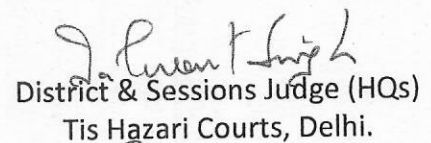 District & Sessions Judge (HQs)
Tis Hazari Courts, Delhi.